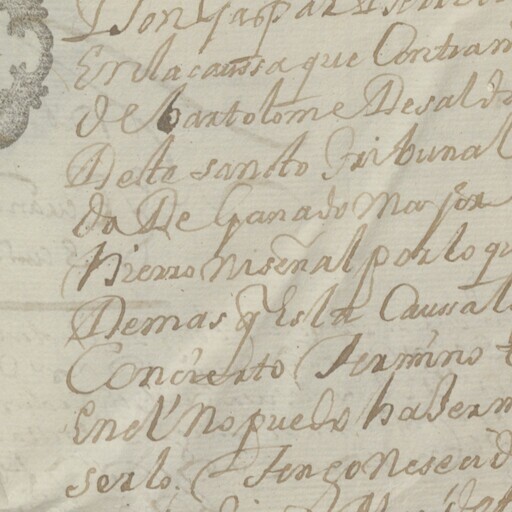 Don Gaspar
En la caussa que Contra m
de bartolome De salda
Deste sancto Tribunal
do De Ganado mayor
hierro ni señal por lo qu
Demas q Esta Caussal
Concierto Termino
En el No puedo haserm
serlo. Tengo Nesecid